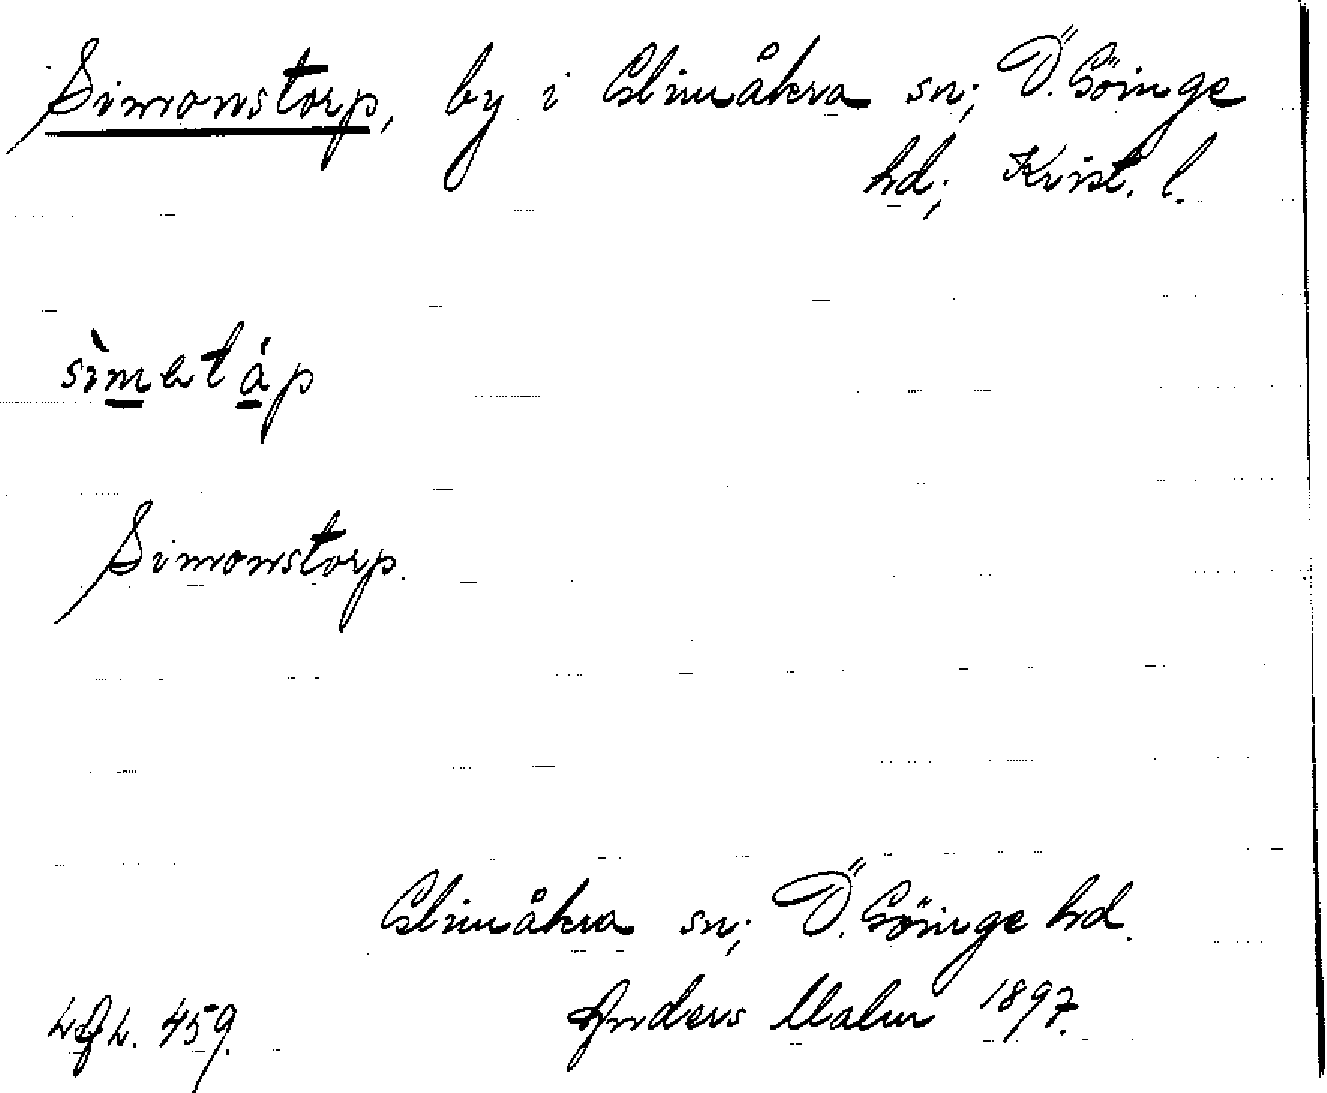 Simonstorp, by i Glimåkra sn; Ö. Göinge
hd; Krist. l.
sìmetáp
Simonstorp.
Glimåkra sn; Ö. Göinge hd.
Anders Malm 1897.
459.